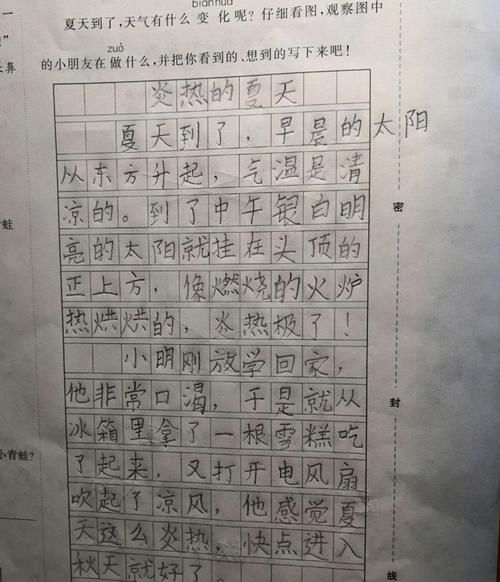 biànhuà
夏天到了，天气有什么 变 化 呢？仔细看图，观察图中
zuò
的小朋友在 做 什么，并把你看到的、想到的写下来吧！
炎热的夏天
夏天到了，早晨的太阳
从东方升起，气温是清
凉的。到了中午银白明
亮的太阳就挂在头顶的
正上方，像燃烧的火炉
热烘烘的，炎热极了！
小明刚放学回家，
他非常口渴，于是就从
冰箱里拿了一根雪糕吃
了起来，又打开电风扇
吹起了凉风，他感觉夏
天这么炎热，快点进入
秋天就好了。
密
封
线
蛙
小青蛙？
鼻